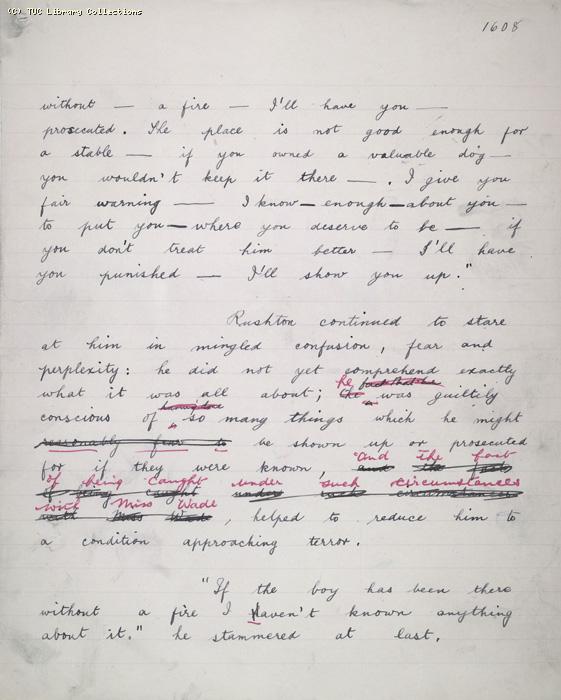 (C) TUC Library Collections
1608
without — a fire — I'll have you —
prosecuted. The place is not good enough for
a stable — if you owned a valuable dog —
you wouldn't keep it there —. I give you
fair warning — I know — enough — about you —
to put you — where you deserve to be — if
you don't treat him better — I'll have
you punished — I'll show you up."
Rushton continued to stare
at him in mingled confusion, fear and
perplexity: he did not yet comprehend exactly
he fact that he
what it was all about; the was guiltily
having done
conscious of so many things which he might
reasonably fear to be shown up or prosecuted
And the fact
for if they were known, and the fact
of being caught under such circumstances
if being caught under such circumstances
with Miss Wade
with Miss Wade, helped to reduce him to
a condition approaching terror.
"If the boy has been there
without a fire I haven't known anything
about it." he stammered at last.